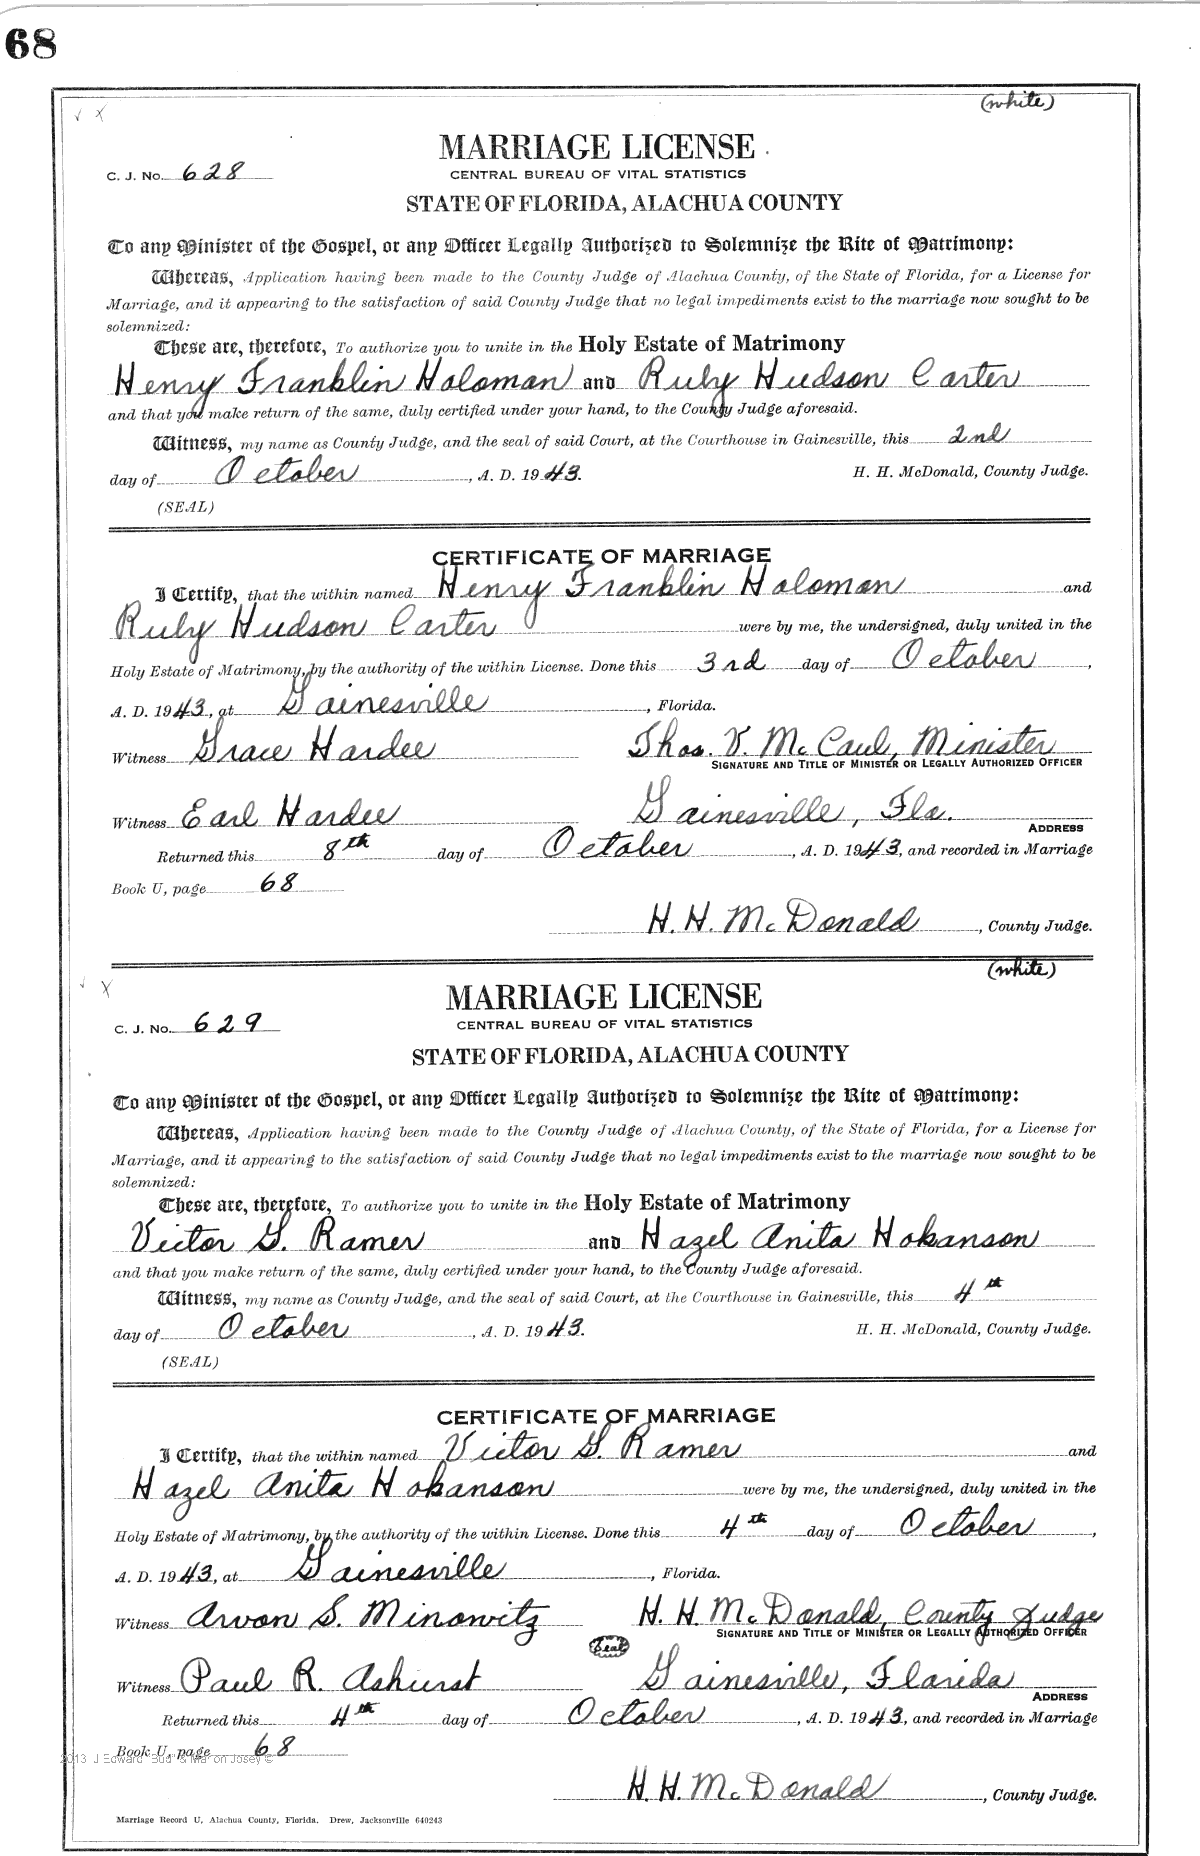 68
(white)
MARRIAGE LICENSE
C. J. No. 628
CENTRAL BUREAU OF VITAL STATISTICS
STATE OF FLORIDA, ALACHUA COUNTY
To any Minister of the Gospel, or any Officer Legally Authorized to Solemnize the Rite of Matrimony:
Whereas, Application having been made to the County Judge of Alachua County, of the State of Florida, for a License for
Marriage, and it appearing to the satisfaction of said County Judge that no legal impediments exist to the marriage now sought to be
solemnized:
These are, therefore, To authorize you to unite in the Holy Estate of Matrimony
Henry Franklin Holoman and Ruby Hudson Carter
and that you make return of the same, duly certified under your hand, to the County Judge aforesaid.
Witness, my name as County Judge, and the seal of said Court, at the Courthouse in Gainesville, this 2nd
day of October, A. D. 1943. H. H. McDonald, County Judge.
(SEAL)
CERTIFICATE OF MARRIAGE
I Certify, that the within named Henry Franklin Holoman and
Ruby Hudson Carter were by me, the undersigned, duly united in the
Holy Estate of Matrimony, by the authority of the within License. Done this 3rd day of October,
A. D. 1943, at Gainesville, Florida.
Witness Grace Hardee Thos. V. McCaul, Minister
SIGNATURE AND TITLE OF MINISTER OR LEGALLY AUTHORIZED OFFICER
Witness Earl Hardee Gainesville, Fla.
ADDRESS
Returned this 8th day of October, A. D. 1943, and recorded in Marriage
Book U, page 68
H. H. McDonald, County Judge.
(white)
MARRIAGE LICENSE
C. J. No. 629
CENTRAL BUREAU OF VITAL STATISTICS
STATE OF FLORIDA, ALACHUA COUNTY
To any Minister of the Gospel, or any Officer Legally Authorized to Solemnize the Rite of Matrimony:
Whereas, Application having been made to the County Judge of Alachua County, of the State of Florida, for a License for
Marriage, and it appearing to the satisfaction of said County Judge that no legal impediments exist to the marriage now sought to be
solemnized:
These are, therefore, To authorize you to unite in the Holy Estate of Matrimony
Victor G. Ramer and Hazel Anita Hokanson
and that you make return of the same, duly certified under your hand, to the County Judge aforesaid.
Witness, my name as County Judge, and the seal of said Court, at the Courthouse in Gainesville, this 4th
day of October, A. D. 1943. H. H. McDonald, County Judge.
(SEAL)
CERTIFICATE OF MARRIAGE
I Certify, that the within named Victor G. Ramer and
Hazel Anita Hokanson were by me, the undersigned, duly united in the
Holy Estate of Matrimony, by the authority of the within License. Done this 4th day of October,
A. D. 1943, at Gainesville, Florida.
Witness Arvon S. Minowitz H. H. McDonald, County Judge
SIGNATURE AND TITLE OF MINISTER OR LEGALLY AUTHORIZED OFFICER
Seal
Witness Paul R. Ashurst Gainesville, Florida
ADDRESS
Returned this 4th day of October, A. D. 1943, and recorded in Marriage
Book U, page 68
2013 J Edward "Bud" & Marion Josey ©
H. H. McDonald, County Judge.
Marriage Record U, Alachua County, Florida. Drew, Jacksonville 640243